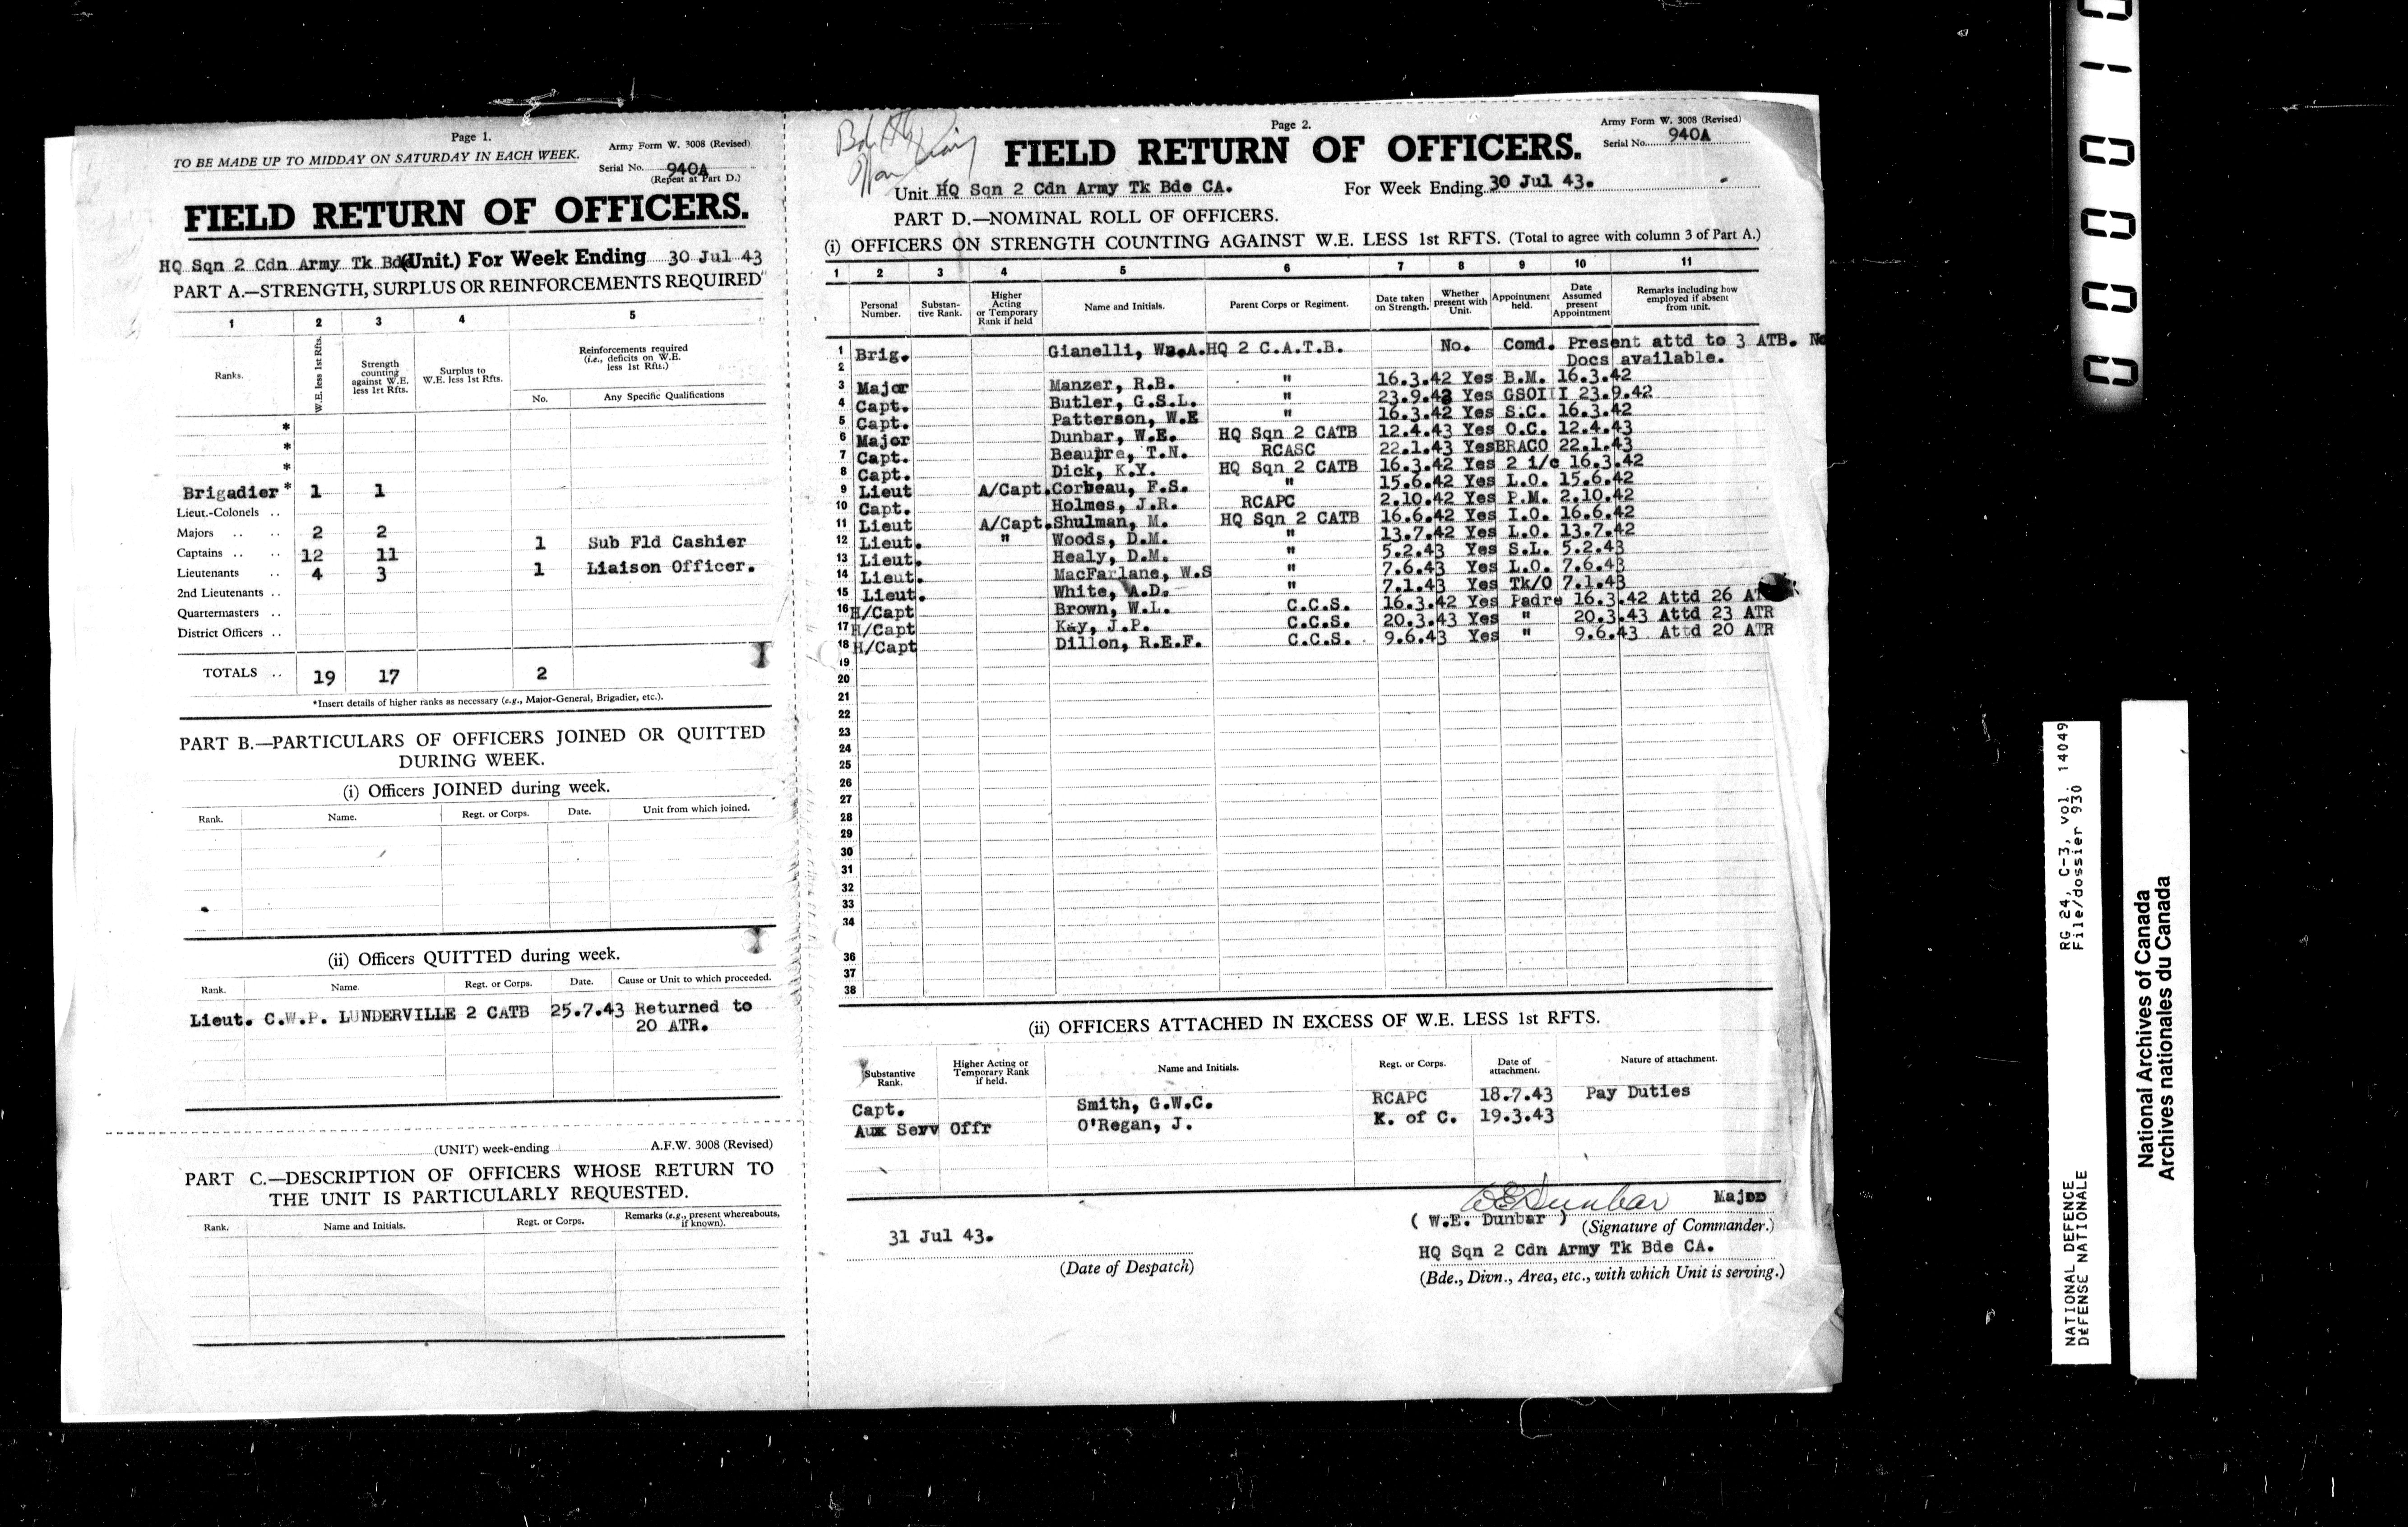 Page 1.
TO BE MADE UP TO MIDDAY ON SATURDAY IN EACH WEEK.
Army Form W. 3008 (Revised)
Serial No. 940A
(Repeat at Part D.)
FIELD RETURN OF OFFICERS.
HQ Sqn 2 Cdn Army Tk Bde (Unit.) For Week Ending 30 Jul 43
PART A.—STRENGTH, SURPLUS OR REINFORCEMENTS REQUIRED
1 2 3 4 5
Ranks. W.E. less 1st Rfts. Strength counting against W.E. less 1rt Rfts. Surplus to W.E. less 1st Rfts. Reinforcements required (i.e., deficits on W.E. less 1st Rfts.)
No. Any Specific Qualifications
*
*
*
Brigadier * 1 1
Lieut.-Colonels ..
Majors .. .. 2 2
Captains .. .. 12 11 1 Sub Fld Cashier
Lieutenants .. 4 3 1 Liaison Officer.
2nd Lieutenants ..
Quartermasters ..
District Officers ..
TOTALS .. 19 17 2
*Insert details of higher ranks as necessary (e.g., Major-General, Brigadier, etc.).
PART B.—PARTICULARS OF OFFICERS JOINED OR QUITTED
DURING WEEK.
(i) Officers JOINED during week.
Rank. Name. Regt. or Corps. Date. Unit from which joined.
(ii) Officers QUITTED during week.
Rank. Name. Regt. or Corps. Date. Cause or Unit to which proceeded.
Lieut. C.W.P. LUNDERVILLE 2 CATB 25.7.43 Returned to
20 ATR.
(UNIT) week-ending A.F.W. 3008 (Revised)
PART C.—DESCRIPTION OF OFFICERS WHOSE RETURN TO
THE UNIT IS PARTICULARLY REQUESTED.
Rank. Name and Initials. Regt. or Corps. Remarks (e.g., present whereabouts, if known).
Page 2.
Army Form W. 3008 (Revised)
Serial No. 940A
FIELD RETURN OF OFFICERS.
Unit HQ Sqn 2 Cdn Army Tk Bde CA. For Week Ending 30 Jul 43.
PART D.—NOMINAL ROLL OF OFFICERS.
(i) OFFICERS ON STRENGTH COUNTING AGAINST W.E. LESS 1st RFTS. (Total to agree with column 3 of Part A.)
1 2 3 4 5 6 7 8 9 10 11
Personal Number. Substan-tive Rank. Higher Acting or Temporary Rank if held Name and Initials. Parent Corps or Regiment. Date taken on Strength. Whether present with Unit. Appointment held. Date Assumed present Appointment Remarks including how employed if absent from unit.
1 Brig. Gianelli, Wm.A. HQ 2 C.A.T.B. No. Comd. Present attd to 3 ATB. No
2 Docs available.
3 Major Manzer, R.B. " 16.3.42 Yes B.M. 16.3.42
4 Capt. Butler, G.S.L. " 23.9.42 Yes GSOIII 23.9.42
5 Capt. Patterson, W.E " 16.3.42 Yes S.C. 16.3.42
6 Major Dunbar, W.E. HQ Sqn 2 CATB 12.4.43 Yes O.C. 12.4.43
7 Capt. Beaupre, T.N. RCASC 22.1.43 Yes BRACO 22.1.43
8 Capt. Dick, K.Y. HQ Sqn 2 CATB 16.3.42 Yes 2 i/c 16.3.42
9 Lieut A/Capt. Corbeau, F.S. " 15.6.42 Yes L.O. 15.6.42
10 Capt. Holmes, J.R. RCAPC 2.10.42 Yes P.M. 2.10.42
11 Lieut A/Capt. Shulman, M. HQ Sqn 2 CATB 16.6.42 Yes I.O. 16.6.42
12 Lieut. " Woods, D.M. " 13.7.42 Yes L.O. 13.7.42
13 Lieut. Healy, D.M. " 5.2.43 Yes S.L. 5.2.43
14 Lieut. MacFarlane, W.S " 7.6.43 Yes L.O. 7.6.43
15 Lieut. White, A.D. " 7.1.43 Yes Tk/O 7.1.43
16 H/Capt Brown, W.L. C.C.S. 16.3.42 Yes Padre 16.3.42 Attd 26
17 H/Capt Kay, J.P. C.C.S. 20.3.43 Yes " 20.3.43 Attd 23 ATR
18 H/Capt Dillon, R.E.F. C.C.S. 9.6.43 Yes " 9.6.43 Attd 20 ATR
19
20
21
22
23
24
25
26
27
28
29
30
31
32
33
34
36
37
38
(ii) OFFICERS ATTACHED IN EXCESS OF W.E. LESS 1st RFTS.
Substantive Rank. Higher Acting or Temporary Rank if held. Name and Initials. Regt. or Corps. Date of attachment. Nature of attachment.
Capt. Smith, G.W.C. RCAPC 18.7.43 Pay Duties
Aux Serv Offr O'Regan, J. K. of C. 19.3.43
WEDunbar Major
( W.E. Dunbar ) (Signature of Commander.)
31 Jul 43.
(Date of Despatch)
HQ Sqn 2 Cdn Army Tk Bde CA.
(Bde., Divn., Area, etc., with which Unit is serving.)
RG 24, C-3, vol. 14049
File/dossier 930
NATIONAL DEFENCE
DÉFENSE NATIONALE
National Archives of Canada
Archives nationales du Canada